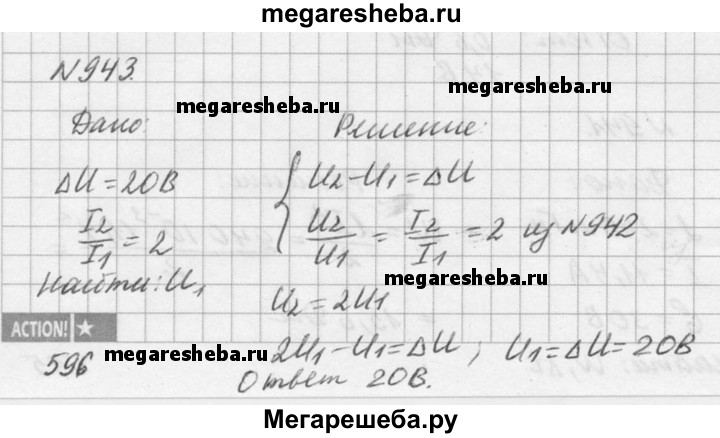 megaresheba.ru
N943.
megaresheba.ru
megaresheba.ru
Дано: Решение:
ΔU=20В
I2/I1=2
Найти: U1
U2-U1=ΔU
U2/U1=I2/I1=2 из N942
megaresheba.ru
U2=2U1
ACTION!
596
megaresheba.ru
2U1-U1=ΔU; U1=ΔU=20В
Ответ 20В.
Мегарешеба.ру